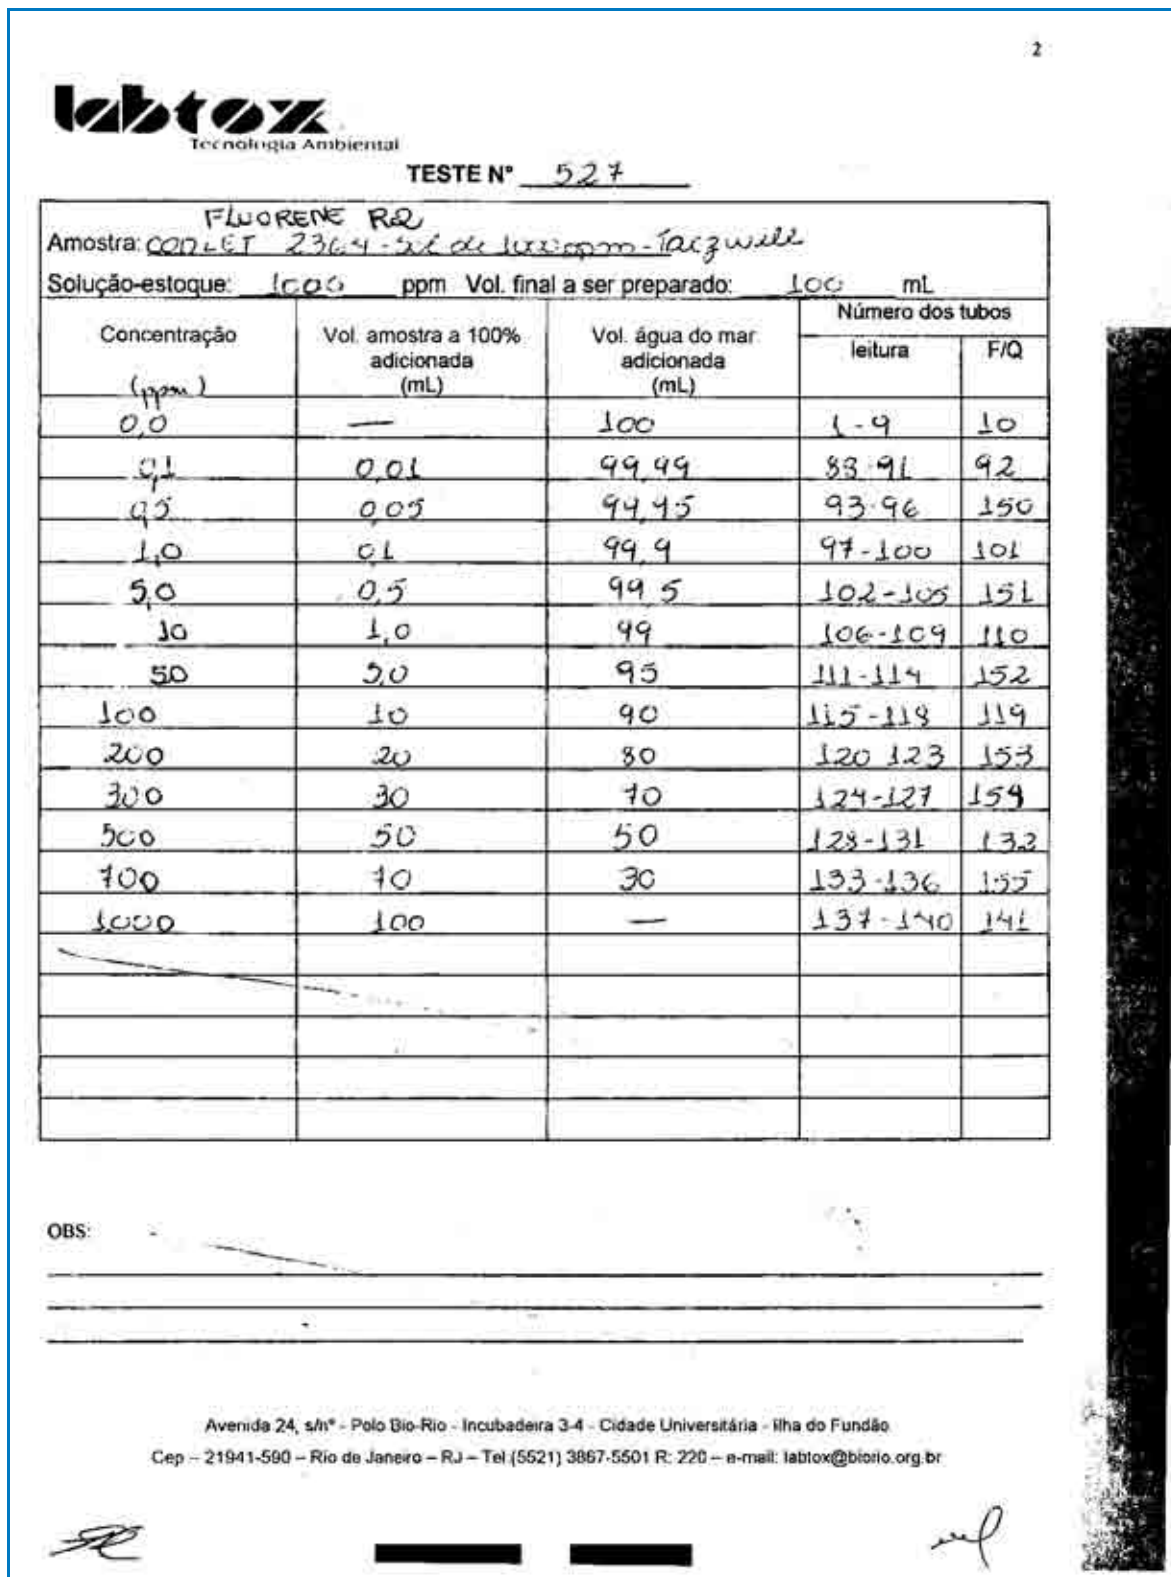 2
labtox
Tecnologia Ambiental
TESTE N° 527
FLUORENE RQ
Amostra: 2364 - Sol de 1000 ppm -
Solução-estoque: 1000 ppm Vol. final a ser preparado: 100 mL
Concentração (ppm) Vol. amostra a 100% adicionada (mL) Vol. água do mar adicionada (mL) Número dos tubos leitura F/Q
0,0 — 100 1-9 10
0,1 0,01 99,99 88-91 92
0,5 0,05 99,95 93-96 150
1,0 0,1 99,9 97-100 101
5,0 0,5 99,5 102-105 151
10 1,0 99 106-109 110
50 5,0 95 111-114 152
100 10 90 115-118 119
200 20 80 120 123 153
300 30 70 124-127 154
500 50 50 128-131 132
700 70 30 133-136 155
1000 100 — 137-140 141
OBS:
Avenida 24, s/n° - Polo Bio-Rio - Incubadeira 3-4 - Cidade Universitária - Ilha do Fundão
Cep – 21941-590 – Rio de Janeiro – RJ – Tel (5521) 3867-5501 R: 220 – e-mail: labtox@biorio.org.br